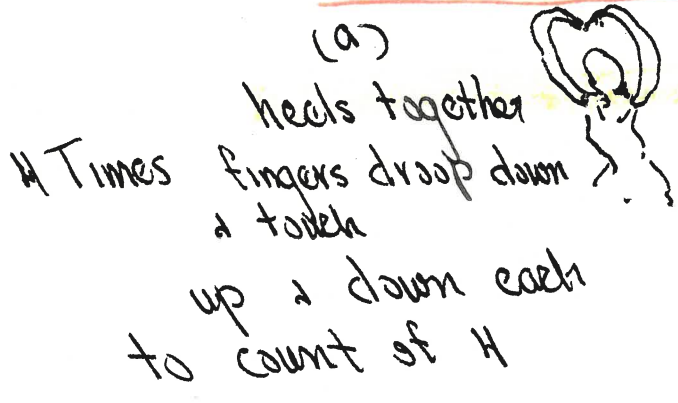 (a)
heels together
4 Times fingers droop down
& touch
up & down each
to count of 4